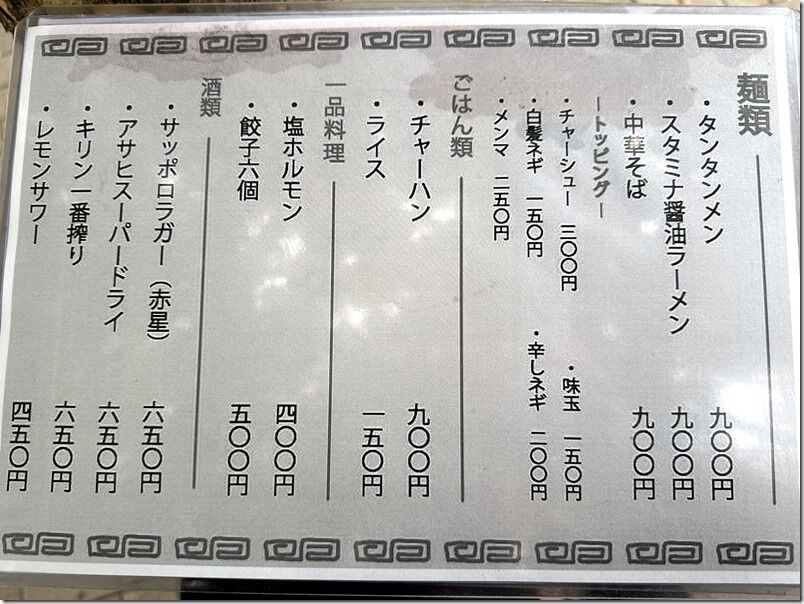 麺類
・タンタンメン 九〇〇円
・スタミナ醤油ラーメン 九〇〇円
・中華そば 九〇〇円
ートッピングー
・チャーシュー 三〇〇円 ・味玉 一五〇円
・白髪ネギ 一五〇円 ・辛しネギ 二〇〇円
・メンマ 二五〇円
ごはん類
・チャーハン 九〇〇円
・ライス 一五〇円
一品料理
・塩ホルモン 四〇〇円
・餃子六個 五〇〇円
酒類
・サッポロラガー（赤星） 六五〇円
・アサヒスーパードライ 六五〇円
・キリン一番搾り 六五〇円
・レモンサワー 四五〇円